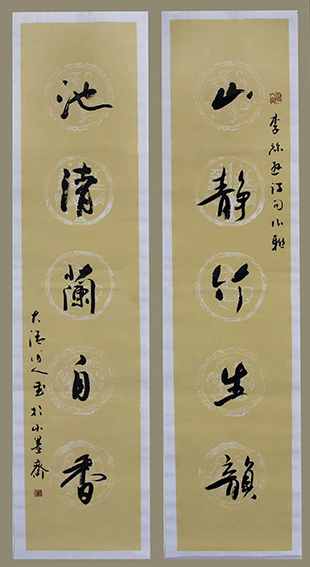 山静竹生韻
李 詩句
池清蘭自香
大 人 於小墨齋